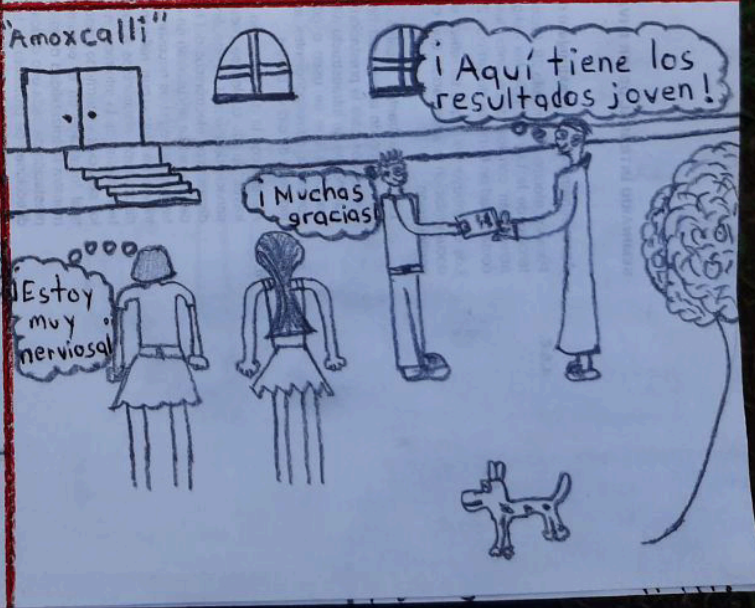 "Amoxcalli"
¡Aquí tiene los
resultados joven!
¡Muchas
gracias!
¡Estoy
muy
nerviosa!